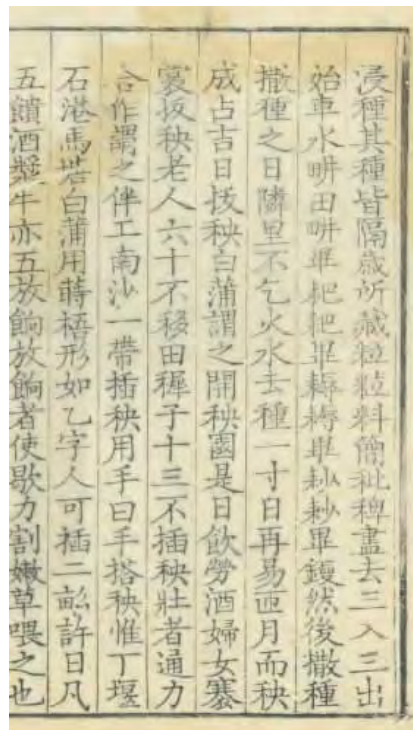 浸種其種皆隔歲所藏粒粒料簡秕稗盡去三入三出
始車水畊田畊畢耙耙畢耨耨畢耖耖畢鏝然後撒種
撒種之日隣里不乞火水去種一寸日再易匝月而秧
成占吉日拔秧白蒲謂之開秧園是日飲勞酒婦女褰
裳拔秧老人六十不移田穉子十三不插秧壯者通力
合作謂之伴工南沙一帶插秧用手曰手搭秧惟丁堰
石港馬塘白蒲用蒔梧形如乙字人可插二畝許日凡
五饋酒漿牛亦五放餉放餉者使歇力割嫩草喂之也